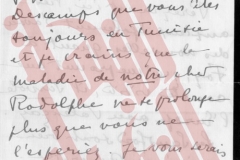 Descamps que vous êtes
toujours en Tunisie
et je crains que la
maladie de notre cher
Rodolphe ne se prolonge
plus que vous ne
l'espériez. Je vous serais